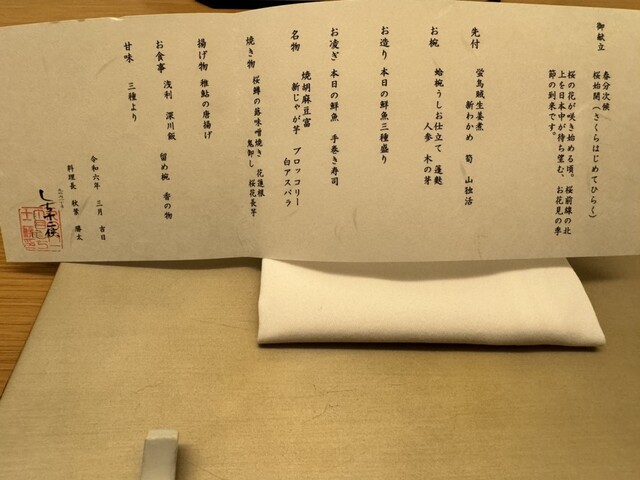 御献立
春分次候
桜始開(さくらはじめてひらく)
桜の花が咲き始める頃。桜前線の北
上を日本中が待ち望む、お花見の季
節の到来です。
先付 蛍烏賊生姜煮
新わかめ 筍 山独活
お椀 蛤椀うしお仕立て 蓬麩
人参 木の芽
お造り 本日の鮮魚三種盛り
お凌ぎ 本日の鮮魚 手巻き寿司
名物 焼胡麻豆富 ブロッコリー
新じゃが芋 白アスパラ
焼き物 桜鱒の蕗味噌焼き 花蓮根
鬼卸し 桜花長芋
揚げ物 稚鮎の唐揚げ
お食事 浅利 深川飯 留め椀 香の物
甘味 三種より
令和六年 三月 吉日
料理長 秋葉 勝太
七十二候